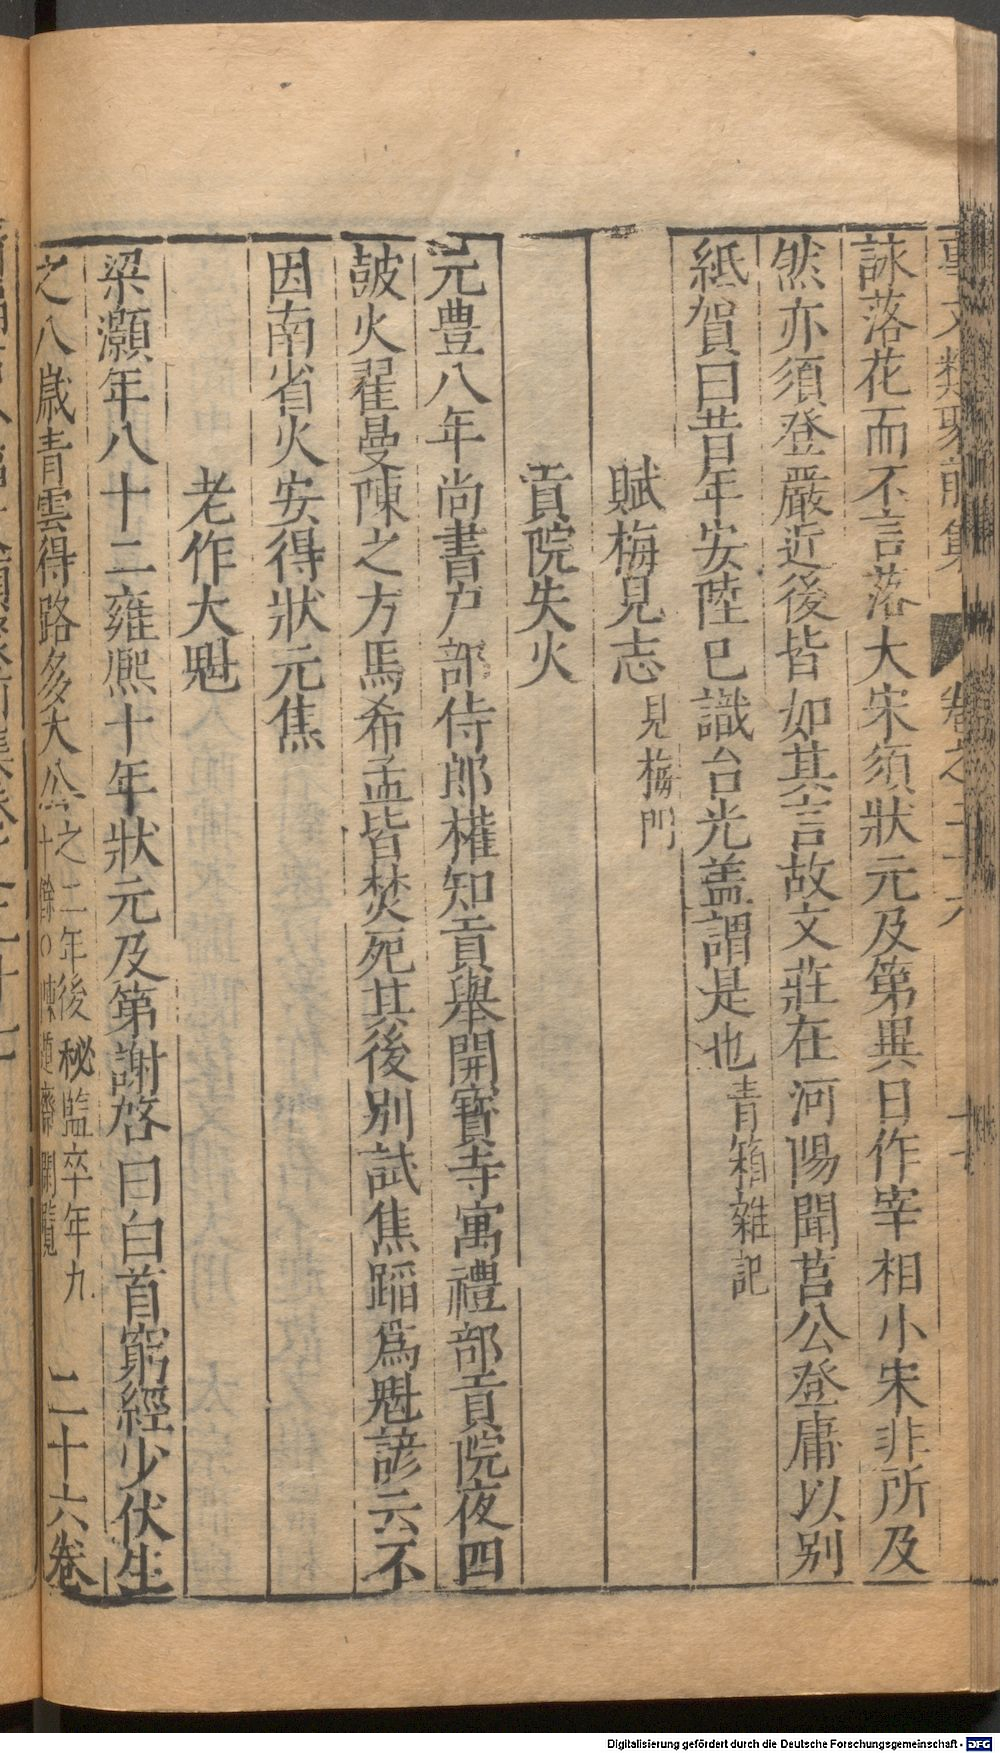 事文類聚前集 卷之二十六 十七
詠落花而不言落大宋須狀元及第異日作宰相小宋非所及
然亦須登嚴近後皆如其言故文莊在河陽聞莒公登庸以別
紙賀曰昔年安陸已識台光蓋謂是也青箱雜記
賦梅見志見梅門
貢院失火
元豊八年尚書户部侍郎權知貢舉開寶寺寓禮部貢院夜四
皷火翟曼陳之方馬希孟皆焚死其後別試焦蹈爲魁諺云不
因南省火安得狀元焦
老作大魁
梁灝年八十二雍熈十年狀元及第謝啓曰白首窮經少伏生
之八歲青雲得路多太公之二年後秘監卒年九十餘○陳遁齋閑覽 二十六卷
Digitalisierung gefördert durch die Deutsche Forschungsgemeinschaft - DFG